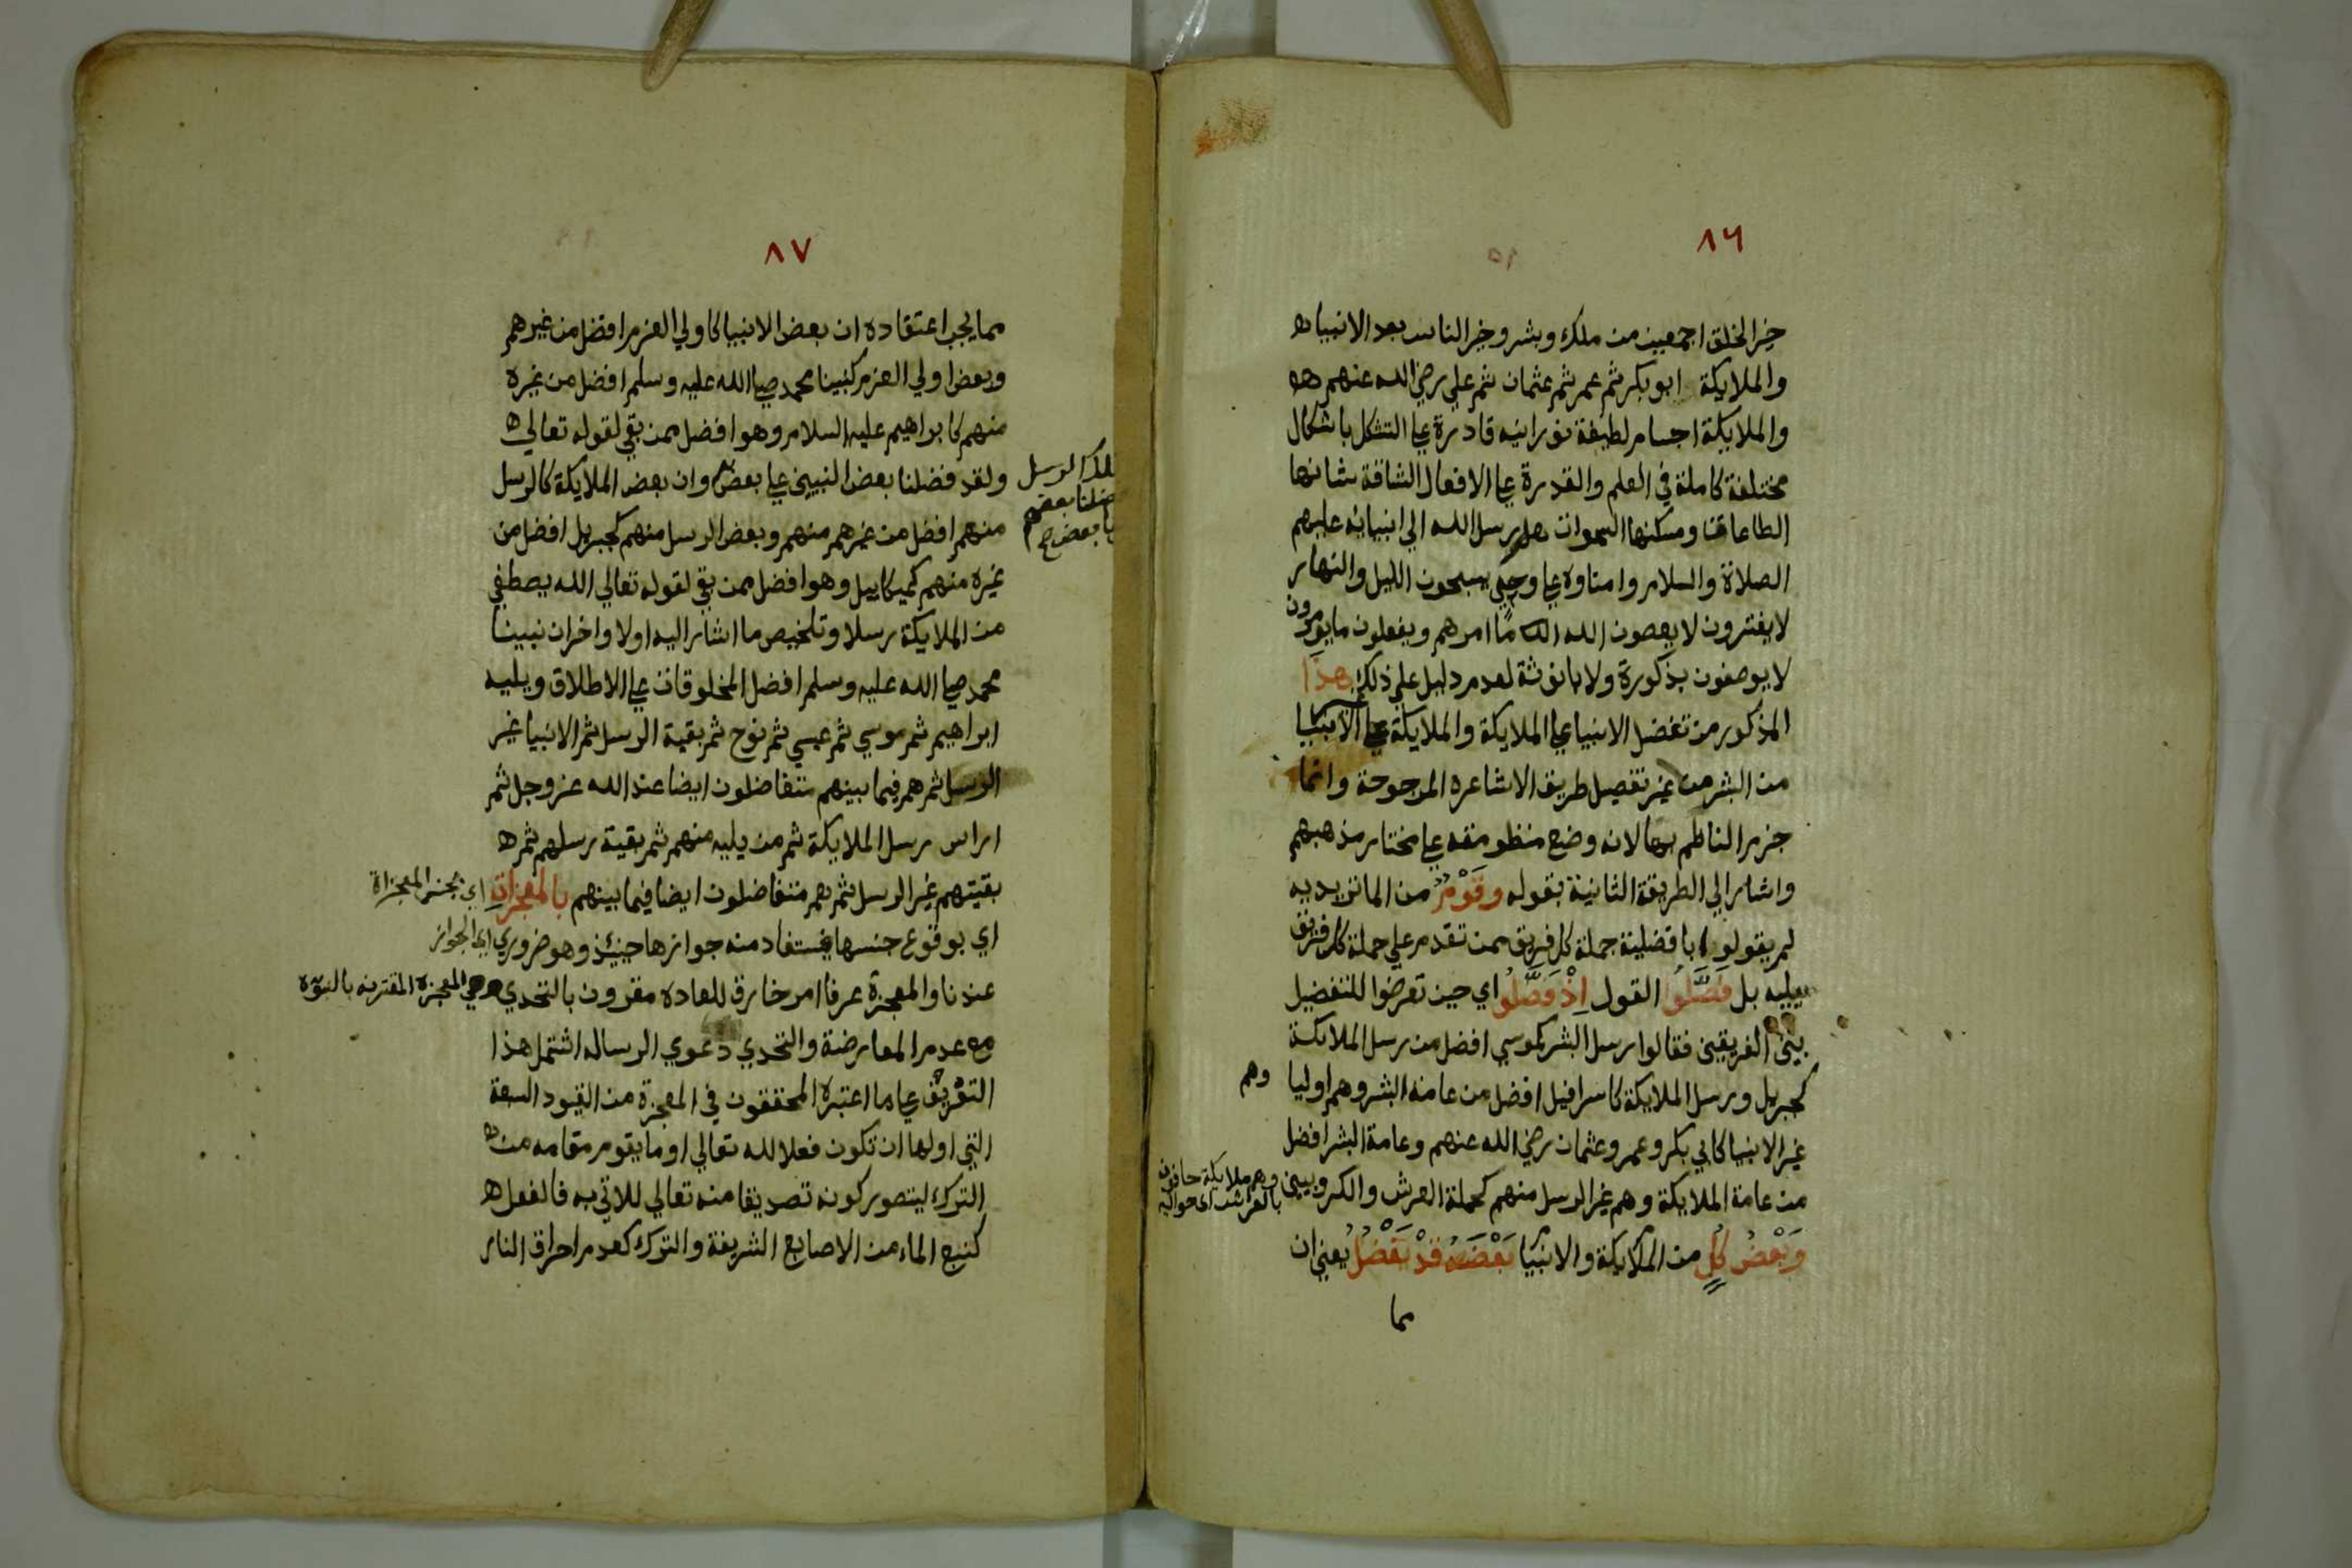 ٨٦
خير الخلق اجمعين من ملك وبشر وخير الناس بعد الانبيا
والملايكة ابو بكر ثم عمر ثم عثمان ثم علي رضي الله عنهم
والملايكة اجسام لطيفة نورانيه قادرة علي التشكل باشكال
مختلفة كاملة في العلم والقدرة علي الافعال الشاقة شانها
الطاعات ومسكنها السموات رسل الله الي انبيائه عليهم
الصلاة والسلام وامناوه علي وحيه يسبحون الليل والنهار
لا يفترون لا يعصون الله ما امرهم ويفعلون ما يومرون
لا يوصفون بذكورة ولا بانوثة لعدم دليل علي ذلك هذا
المذكور من تفضيل الانبيا علي الملايكة والملايكة علي الانبيا
من البشر من غير تفصيل طريق الاشاعره المرجوحة وانما
جزم الناظم بها لانه وضع منظومته علي مختار مذهبهم
واشار الي الطريقة الثانية بقوله وقوم من الماتريديه
لم يقولوا بافضلية جملة كل فريق ممن تقدم علي جملة كل فريق
يليه بل فصلوا القول اذ فضلوا اي حين تعرضوا للتفضيل
بين الفريقين فقالوا رسل البشر كموسي افضل من رسل الملايكة
كجبريل ورسل الملايكة كاسرافيل افضل من عامة البشر وهم اوليا
وهم
غير الانبيا كابي بكر وعمر وعثمان رضي الله عنهم وعامة البشر افضل
من عامة الملايكة وهم غير الرسل منهم كحملة العرش والكروبيين
وهم ملايكة حافون
بالعرش اي حواليه
وبعض كل من الملايكة والانبيا بعضه قد يفضل يعني ان
مما
٨٧
مما يجب اعتقاده ان بعض الانبيا كاولي العزم افضل من غيرهم
وبعض اولي العزم كنبينا محمد صلي الله عليه وسلم افضل من غيره
منهم كابراهيم عليه السلام وهو افضل ممن بقي لقوله تعالي
ولقد فضلنا بعض النبيين علي بعض وان بعض الملايكة كالرسل
تلك الرسل
فضلنا بعضهم
علي بعض صح
منهم افضل من غيرهم منهم وبعض الرسل منهم كجبريل افضل من
غيره منهم كميكاييل وهو افضل ممن بقي لقوله تعالي الله يصطفي
من الملايكة رسلا وتلخيص ما اشار اليه اولا واخرا ان نبينا
محمد صلي الله عليه وسلم افضل المخلوقات علي الاطلاق ويليه
ابراهيم ثم موسي ثم عيسي ثم نوح ثم بقية الرسل ثم الانبيا غير
الرسل ثم هم فيما بينهم متفاضلون ايضا عند الله عز وجل ثم
رسل الملايكة ثم من يليه منهم ثم بقية رسلهم ثم
بقيتهم غير الرسل ثم هم متفاضلون ايضا فيما بينهم بالمعجزات اي بجنس المعجزاة
اي بوقوع جنسها فيستفاد منه جوازها حينئذ وهو ضروري اي الجواز
عندنا والمعجزة عرفا امر خارق للعاده مقرون بالتحدي وهي المعجزه المقترنه بالنبوة
مع عدم المعارضة والتحدي دعوي الرساله اشتمل هذا
التعريف علي ما اعتبره المحققون في المعجزة من القيود السبعة
التي اولها ان تكون فعلا لله تعالي او ما يقوم مقامه من
الترك ليتصور كونه تصديقا منه تعالي للاتي به فالفعل
كنبع الماء من الاصابع الشريفة والترك كعدم احراق النار